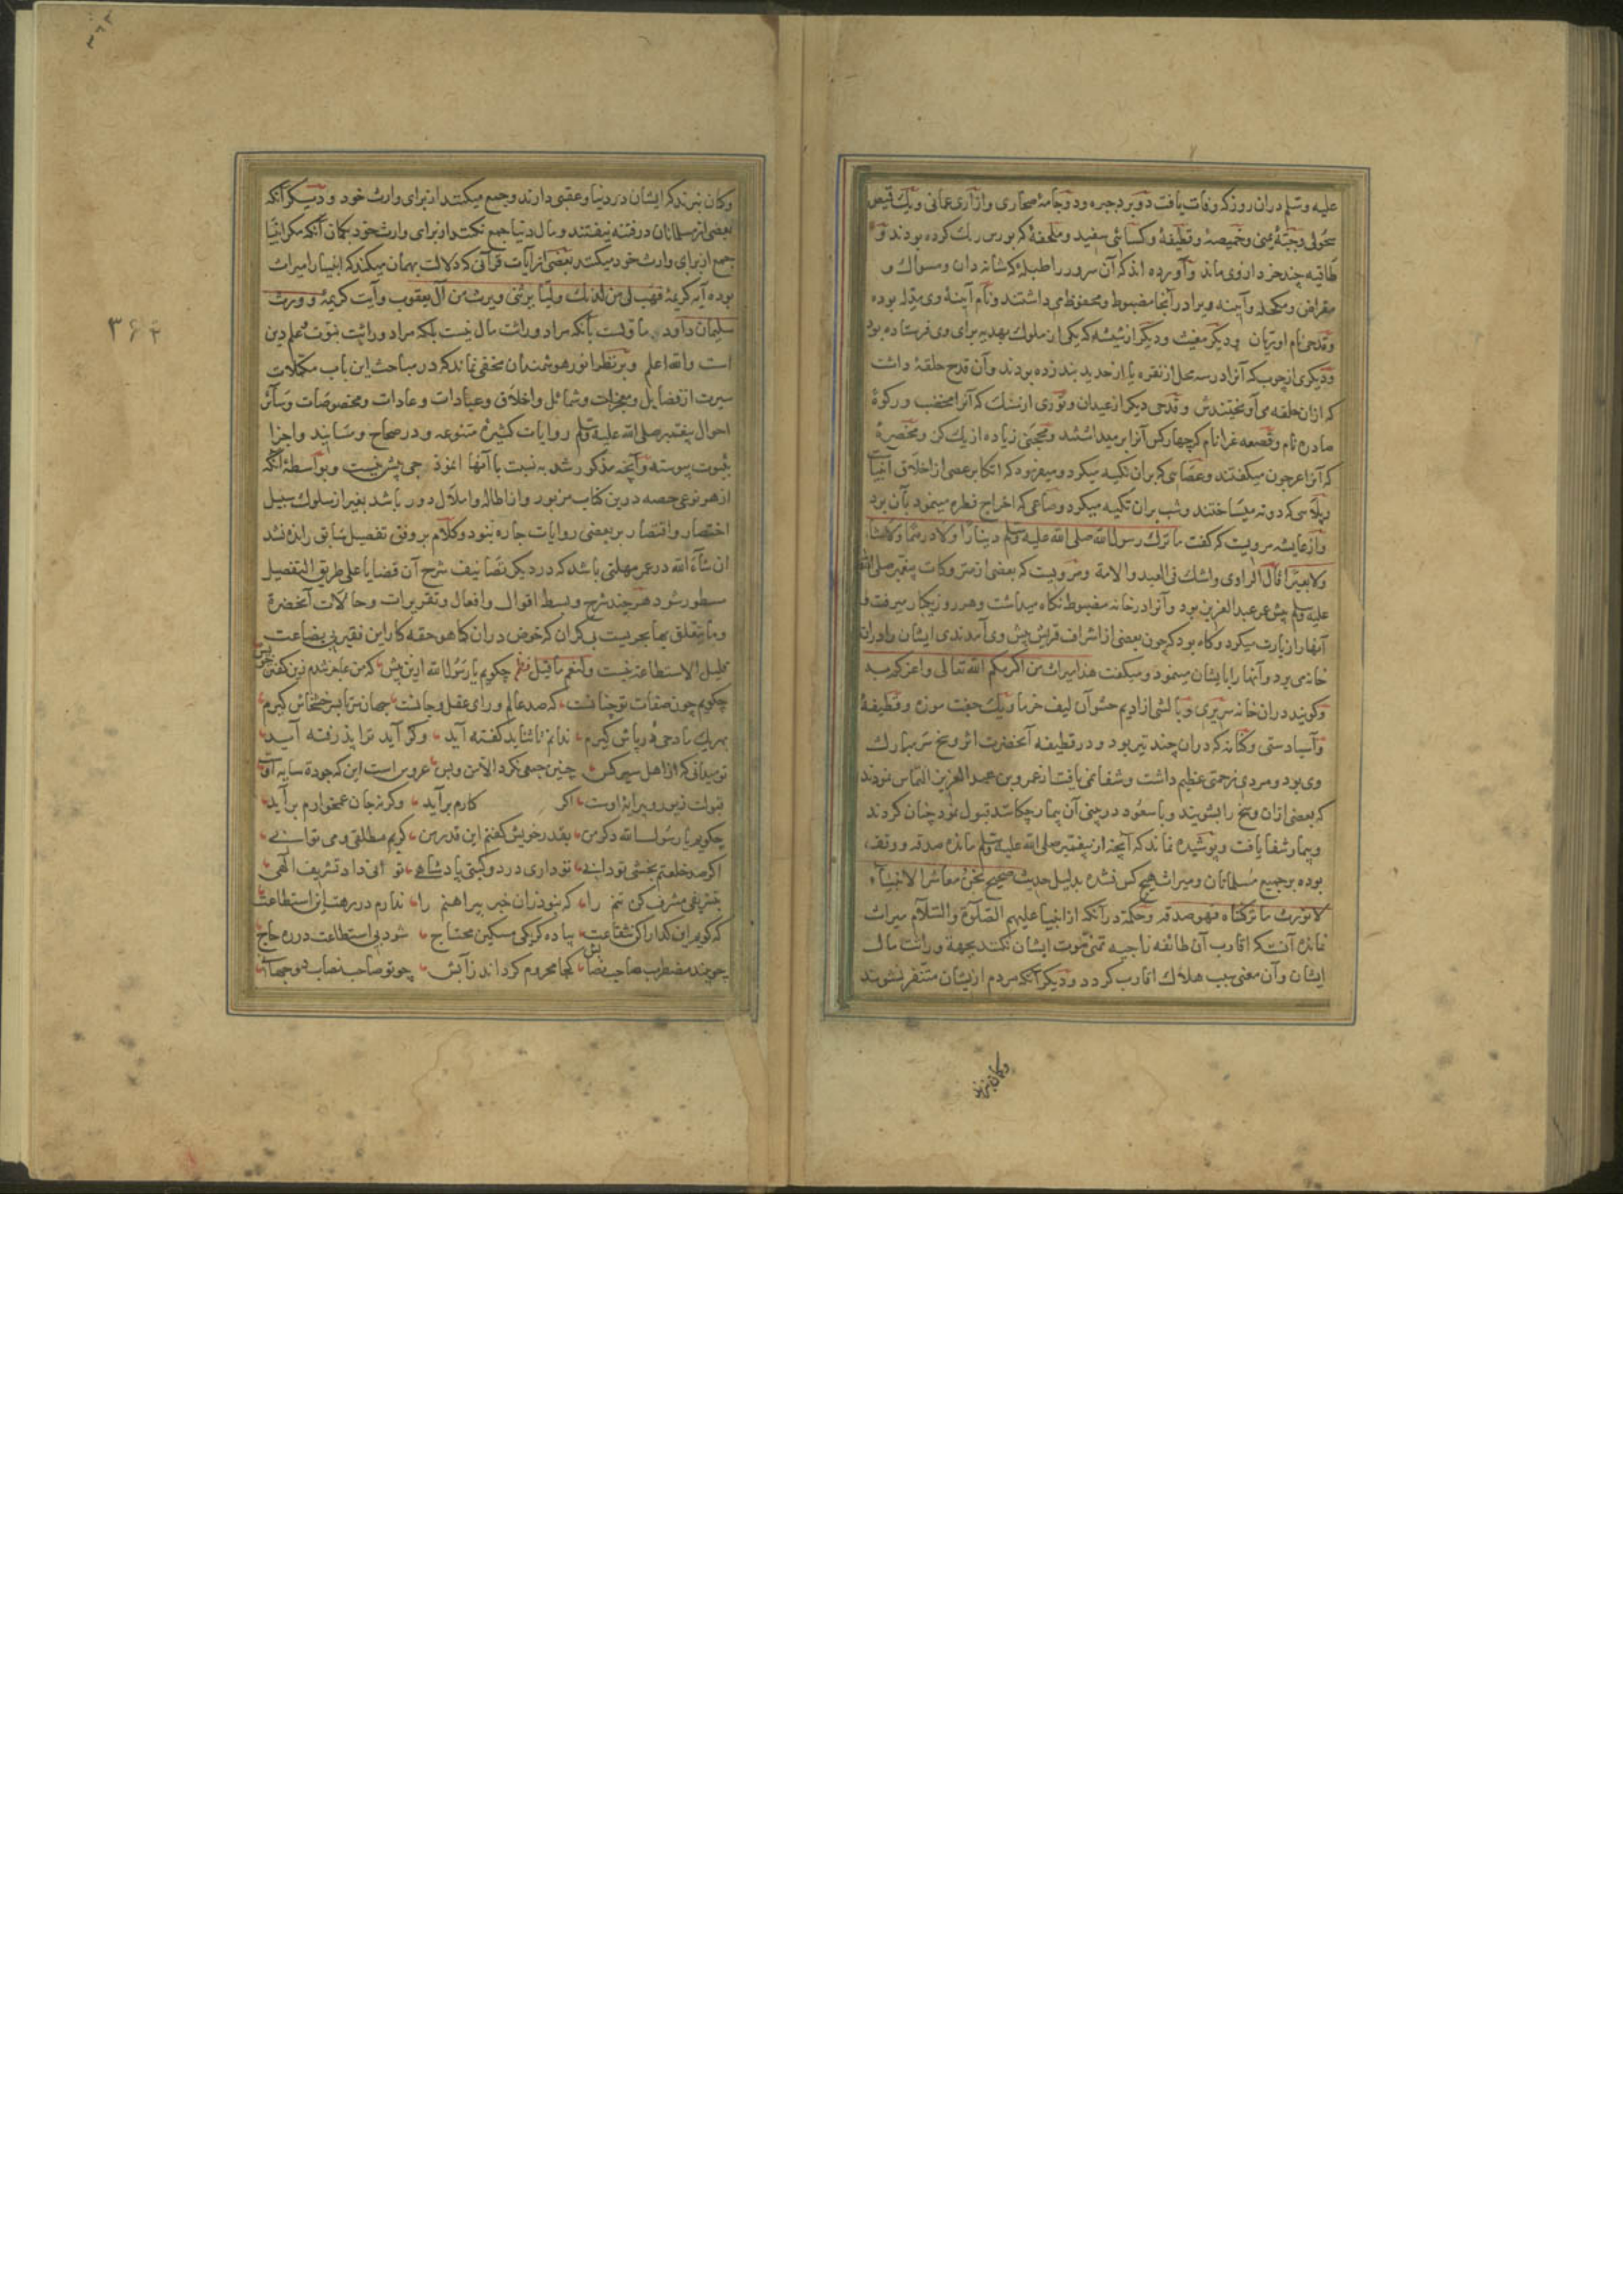 علیه وسلم دران روز که وفات یافت دو برد حبره ودو جامهٔ صحاری وازاری عمانی ویک قمیص
سحولی وجبّهٔ یمنی وخمیصهٔ وقطیفهٔ وکسائی سفید وملحفهٔ که بورس رنک کرده بودند و
طاقیه چند از وی ماند وآورده اند که آن سرور را طبلهٔ که شانه دان ومسواک و
مقراض ومکحله وآینه ویرا در آنجا مضبوط ومحفوظ می داشتند ونام آینهٔ وی مدله بوده
وقدحی نام او ریان ودیکر مغیث ودیکر از شیشه که یکی از ملوک بهدیه برای وی فرستاده بود
ودیکری از چوب که آنرا در سه محل از نقره یا از حدید بند زده بودند وآن قدح حلقهٔ داشت
که ازان حلقه می آویختندش وقدحی دیکر از عیدان وتوری از سنک که آنرا مخضب ورکوهٔ
صادره نام وقصعه غرا نام که چهار کس آنرا بر میداشتند ومحجنی زیاده از یک کز ومخصرهٔ
که آنرا عرجون میکفتند وعصایی که بران تکیه میکرد ومیفرمود که اتکا بر عصی از اخلاق انبیاست
وپلاسی که دوته میساختند وشب بران تکیه میکرد وصاعی که اخراج فطره مینمود بآن بود
واز عایشه مرویست که کفت ما ترک رسول الله صلی الله علیه وسلم دینارا ولا درهما ولا شاة
ولا بعیرا قال الراوی واشک فی العبد والامة ومرویست که بعضی از متروکات پیغمبر صلی الله
علیه وسلم پیش عمر عبد العزیز بود وآنرا در خانه مضبوط نکاه میداشت وهر روز یکبار میرفت و
آنها را زیارت میکرد وکاه بود که چون بعضی از اشراف قریش پیش وی آمدندی ایشان را دران
خانه می برد وآنها را بایشان مینمود ومیکفت هذا میراث من اکرمکم الله تعالی واعزکم به
وکویند دران خانه سریری وبالشی از ادیم حشو آن لیف خرما ویک جفت موزه وقطیفهٔ
وآسیا دستی وکنانه که دران چند تیر بود ودر قطیفه آنحضرت اثر وسخ سر مبارک
وی بود ومردی زحمتی عظیم داشت وشفا نمی یافت از عمرو بن عبد العزیز التماس نمودند
که بعضی ازان وسخ را بشویند وبا سعود در بینی آن بیمار چکانند قبول نمود چنان کردند
وبیمار شفا یافت وپوشیده نماند که آنچه از پیغمبر صلی الله علیه وسلم مانده صدقه ووقف
بوده بر جمیع مسلمانان ومیراث هیچ کس نشده بدلیل حدیث صحیح نحن معاشر الانبیاء
لا نورث ما ترکناه فهو صدقه وحکمة در آنکه از انبیا علیهم الصلوة والسلام میراث
نمانده آنستکه اقارب آن طائفه ناجیه تمنی موت ایشان نکنند بجهة وراثت مال
ایشان وآن معنی سبب هلاک اقارب کردد ودیکر آنکه مردم از ایشان متنفر نشوند
وکمان نبرند
۳۶۲
وکمان نبرند که ایشان در دنیا وعقبی دارند وجمع میکنند از برای وارث خود ودیکر آنکه
بعضی از مسلمانان در فتنه نیفتند ومال دنیا جمع نکنند از برای وارث خود بکمان آنکه مکر انبیا
جمع از برای وارث خود میکنند بعضی از آیات قرآنی که دلالت بهمان میکند که انبیا را میراث
بوده آیه کریمهٔ فهب لی من لدنک ولیّا یرثنی ویرث من آل یعقوب وآیت کریمهٔ وورث
سلیمان داود ماولست بآنکه مراد وراثت مال نیست بلکه مراد وراثت نبوت وعلم دین
است والله اعلم وبر نظر انور هوشمندان مخفی نماند که در مباحث این باب مکملات
سیرت از فضایل ومعجزات وشمائل واخلاق وعبادات وعادات ومخصوصات وسائر
احوال پیغمبر صلی الله علیه وسلم روایات کثیرهٔ متنوعه ودر صحاح ومسانید واجزا
بثبوت پیوسته وآنچه مذکور شد به نسبت با آنها انموذجی بیش نیست وبواسطهٔ آنکه
از هر نوعی حصه درین کتاب مزبور واز اطاله واملال دور باشد بغیر از سلوک سبیل
اختصار واقتصار بر بعضی روایات چاره نبود وکلام بر وفق تفصیل سابق رانده نشد
ان شاء الله در عمر مهلتی باشد که در دیکر تصانیف شرح آن قضایا علی طریق التفصیل
مسطور شود هر چند شرح وبسط اقوال وافعال وتقریرات وحالات آنحضرة
وما یتعلق بها بحریست بی کران که خوض دران کما هو حقه کار این فقیر بی بضاعت
قلیل الاستطاعة نیست ولنعم ما قیل نظم چکویم یا رسول الله ازین بیش که من عاجز شدم زین کفتن خویش
چکویم چون صفات تو چنانست که صد عالم ورای عقل وجانست جهان سر تا بسر خشخاش کیرم
بهر یک مادحی درپاش کیرم ندانم تا ثنا ید کفته آید وکر آید ترا پذرفته آید
تو میدانی که از اهل سیر کس چنین جمعی نکرد الامن وبس عروس است این که جوده سایه اوست
قبولت زیور وپیرایهٔ اوست اکر کارم برآید وکر نه جان غمخوارم برآید
چکویم یا رسول الله دکر من بقدر خویش کفتم این قدر من کریم مطلقی ومی توانی
اکر صد خلعتم بخشی تو دانی تو داری در دو کیتی پادشاهی تو انی داد تشریف الهی
بتشریفی مشرف کن تنم را که نبود زان خبر پیراهنم را ندارم در رهت این استطاعت
که کویم این کدا را کن شفاعت پیاده کر یکی مسکین محتاج شود بی استطاعت در ره حاج
چو بیند مضطرب صاحب نصابش کجا محروم کرداند زآبش چو تو صاحب نصاب هر دو جهانی
۳۶۲